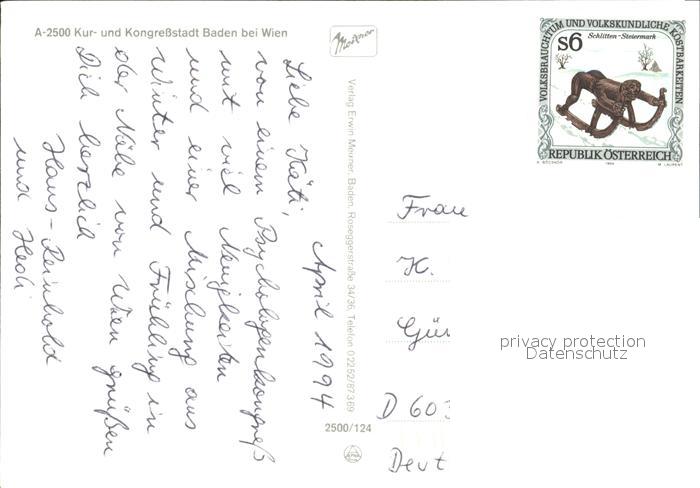 A-2500 Kur- und Kongreßstadt Baden bei Wien
April 1994
Liebe Käti,
von einem Psychologenkongreß
mit viel Neuigkeiten
und einer Mischung aus
Winter und Frühling in
der Nähe von Wien grüßen
Dich herzlich
Hans-Reinhold
und Hedi
Verlag Erwin Mexner, Baden, Roseggerstraße 34/36, Telefon 02252/87369
2500/124
VOLKSBRAUCHTUM UND VOLKSKUNDLICHE KOSTBARKEITEN
S6
Schlitten-Steiermark
REPUBLIK ÖSTERREICH
1994
Frau
K.
Gün
D 603
Deut
privacy protection
Datenschutz